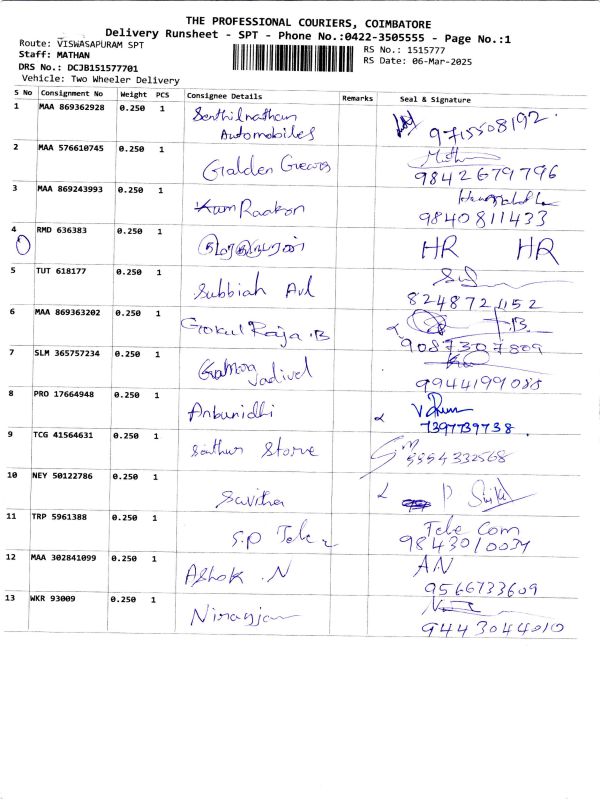 THE PROFESSIONAL COURIERS, COIMBATORE
Delivery Runsheet - SPT - Phone No.:0422-3505555 - Page No.:1
Route: VISWASAPURAM SPT
RS No.: 1515777
Staff: MATHAN
RS Date: 06-Mar-2025
DRS No.: DCJB151577701
Vehicle: Two Wheeler Delivery
S No Consignment No Weight PCS Consignee Details Remarks Seal & Signature
1 MAA 869362928 0.250 1 Senthilnathan
Automobiles 9715508192
2 MAA 576610745 0.250 1 Galden
9842679796
3 MAA 869243993 0.250 1
9840811433
4 RMD 636383 0.250 1 HR HR
5 TUT 618177 0.250 1 Subbiah
8248721152
6 MAA 869363202 0.250 1 Gokul Raja .B
9087307809
7 SLM 365757234 0.250 1
Vadivel 9944199088
8 PRO 17664948 0.250 1 Anbunidhi
7397739738
9 TCG 41564631 0.250 1 Storve
10 NEY 50122786 0.250 1 Savitha
11 TRP 5961388 0.250 1 S.P Tele Tele Com
9843010034
12 MAA 302841099 0.250 1 Ashok .N AN
9566733609
13 WKR 93009 0.250 1 Niranjan
9443044010